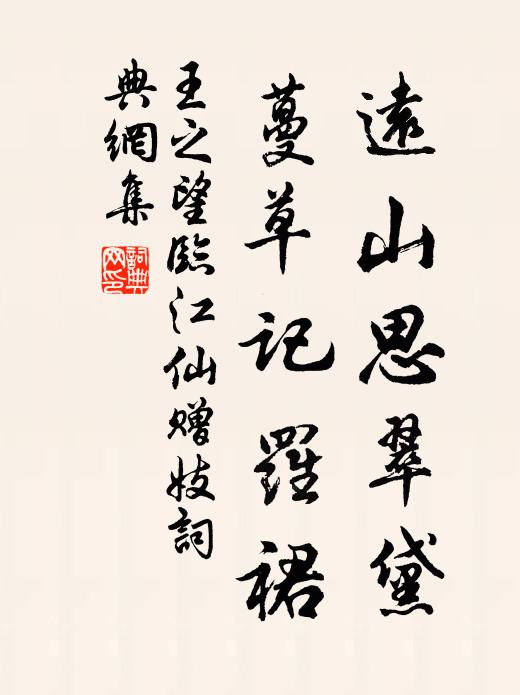 遠山思翠黛
蔓草記羅裙
王之望臨江仙贈妓詞
典網集
詞典
网印